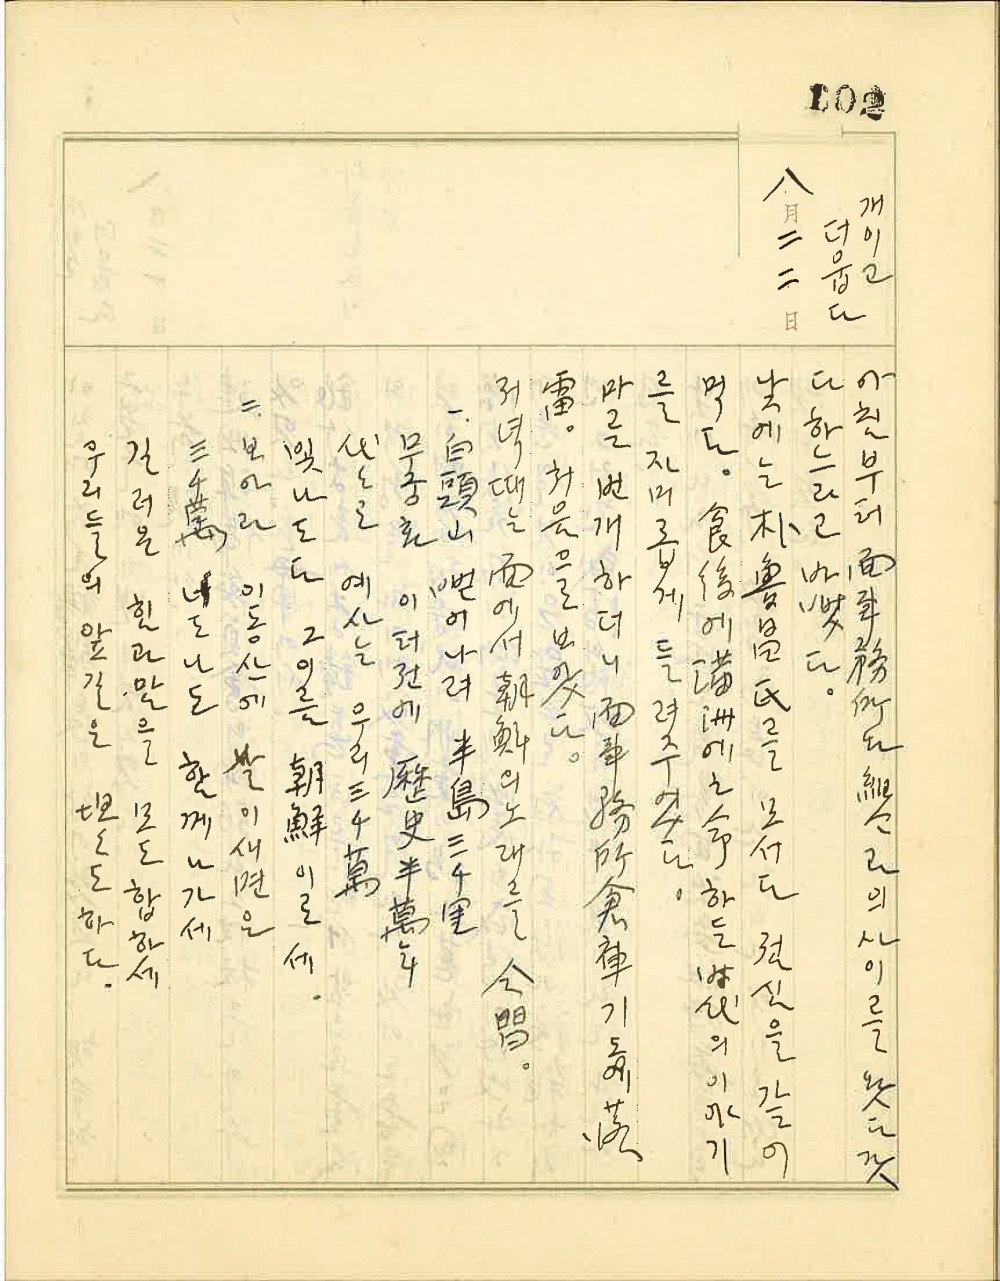 102
개이고
더웁다
八月二二日
아침부터 面事務所다 組合라의 사이를 왓다갓
다하느라고 바뻣다.
낮에는 朴魯昌氏를 모서다 점심을 갗이
먹다。 食後에 満洲에 하든 時代의 이야기
를 자미롭게 들려주엇다.
마른 번개 하더니 面事務所倉庫 기둥에 落
雷。 처음으로 보앗다。
저녁때는 面에서 朝鮮의 노래를 今聞。
一. 白頭山 뻗어나려 半島三千里
무궁화 이터전에 歷史半萬年
代代로 예사는 우리三千萬
빛나도다 그이름 朝鮮이로세.
二. 보아라 이동산에 밤이새면은
三千萬 너도나도 함께나가세
길러온 힘과맘을 모도합하세
우리들의 앞길은 탄탄도하다.